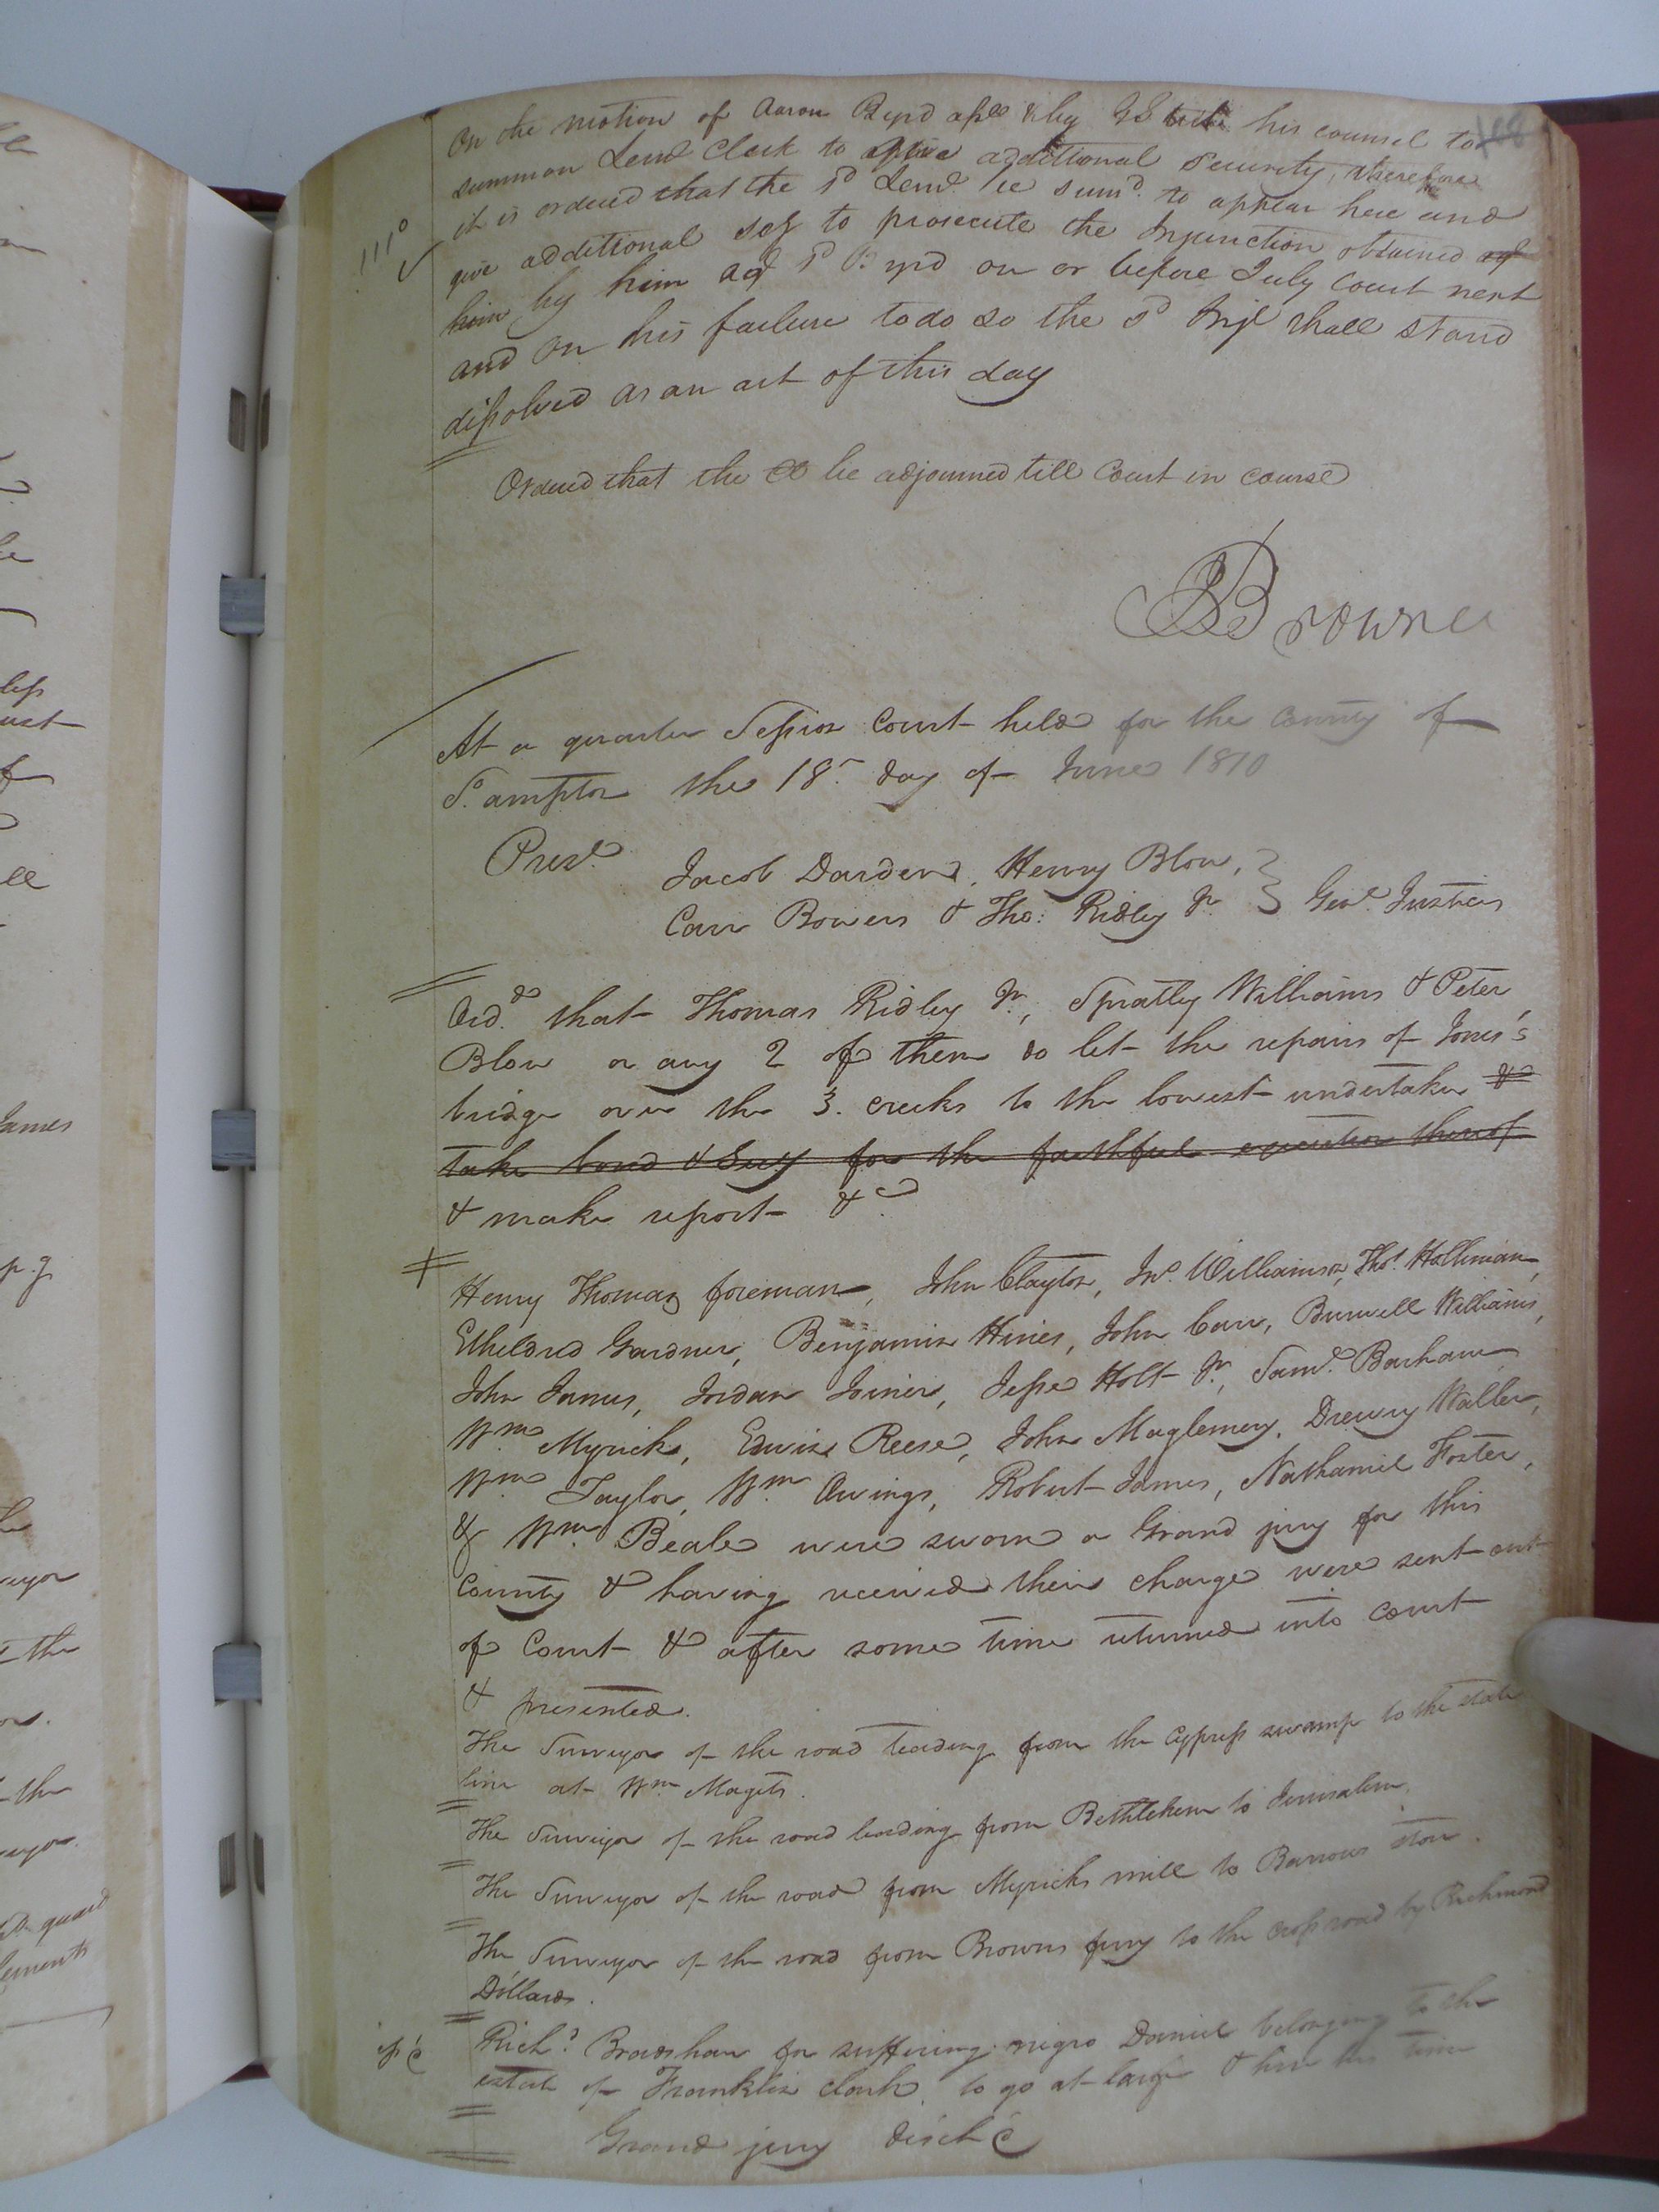 On the motion of Aaron Byrd apl^ee & by his counsel to
summon Lem^l Clark to give additional security, therefore
it is ordered that the s^d Lem^l be sum^d to appear here and
give additional sec^y to prosecute the Injunction obtained
him by him ag^t s^d Byrd on or before July Court next
and on his failure to do so the s^d Inj^n shall stand
dissolved as an act of this day
Ordered that the Ct be adjourned till Court in course
Browne
At a quarter Session Court held for the county of
S^o. ampton the 18^th day of June 1810
Pres^t.
Jacob Darden, Henry Blow,
Carr Bowers & Tho: Ridley Jr. } Gen^t. Justices
Ord^d. that Thomas Ridley Jr., Spratley Williams & Peter
Blow or any 2 of them do let the repairs of Jones's
bridge over the 3. creeks to the lowest undertaker &
take bond & Secy for the faithful execution thereof
& make report &c
Henry Thomas foreman, John Clayton, Jn^o. Williamson, Tho^s. Holliman,
Etheldred Gardner, Benjamin Hines, John Carr, Burwell Williams,
John James, Jordan Joiner, Jesse Holt Jr., Sam^l. Barham,
W^m. Myrick, Edwin Reese, John Maglemery, Drewry Waller,
W^m. Taylor, W^m. Owings, Robert James, Nathaniel Foster,
& W^m. Beale were sworn a Grand jury for this
County & having received their charge were sent out
of Court & after some time returned into court
& presented.
The Surveyor of the road leading from the Cypress swamp to the state
line at W^m. Magets.
The Surveyor of the road leading from Bethlehem to Jerusalem.
The Surveyor of the road from Myricks mill to Barrows store.
The Surveyor of the road from Browns ferry to the cross road by Richmond
Dillards.
Rich^d. Bradshaw for suffering negro Daniel belonging to the
estate of Franklin Clark, to go at large & hire his time
Grand jury disch^d